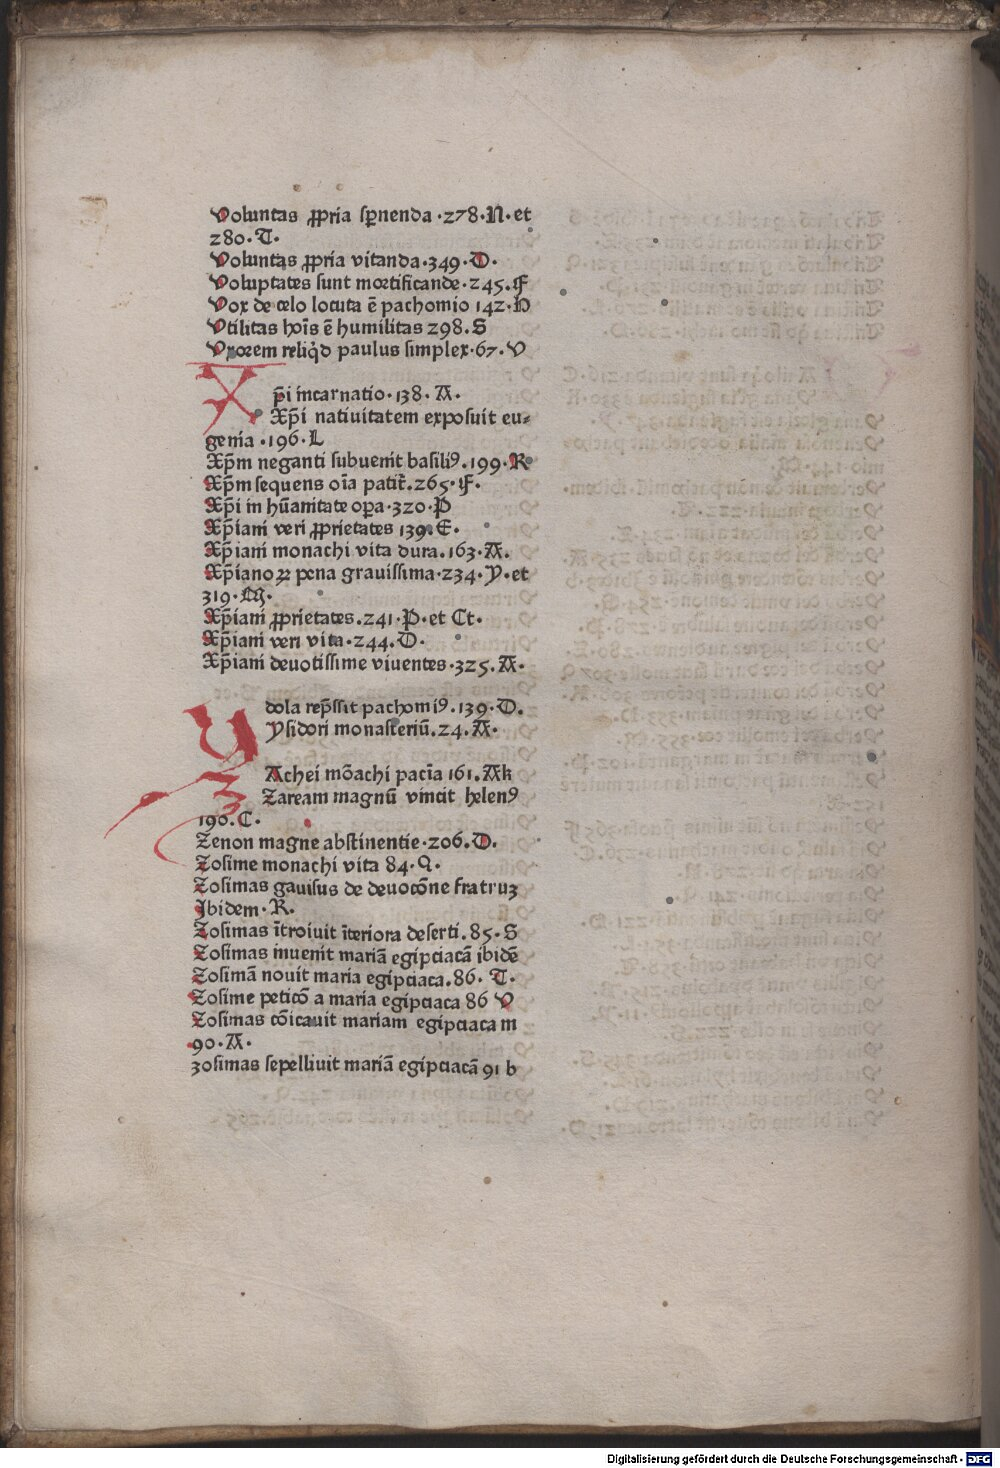 Voluntas ꝓpria sꝑnenda ·278·N· et
280·T·
Voluntas ꝓpria vitanda·349·O·
Voluptates sunt mortificande·245·F
Vox de celo locuta ē pachomio 142·
Vtilitas hoīs ē humilitas 298.S
Vxorem reliq̇d paulus simplex·67·V
X
p̄i incarnatio·138·A·
Xp̄i natiuitatem exposuit eu⸗
genia ·196·L
Xp̄m neganti subuenit basiliꝰ.199·R
Xp̄m sequens oīa patit̄.265·F·
Xp̄i in hūanitate oꝑa·320·P
Xp̄iani veri ꝓprietates 139·E·
Xp̄iani monachi vita dura.163·A.
Xp̄ianoꝝ pena grauissima·234·Y·et
319·M·
Xp̄iani ꝓprietates.241·P·et Ct·
Xp̄iani veri vita·244·O·
Xp̄iani deuotissime viuentes·325.A·
Y
dola rep̄ssit pachomiꝰ.139·O.
Ysidori monasteriū.24.A·
Z
Achei mōachi pacīa 161.Ak
Zaream magnū vincit helenꝰ
190.C·
Zenon magne abstinentie·206.O·
Zosime monachi vita 84·Q·
Zosimas gauisus de deuocōne fratruꝫ
Ibidem·R·
Zosimas ītroiuit īteriora deserti.85·S
Zosimas inuenit mariā egipciacā ibidē
Zosimā nouit maria egipciaca.86· T·
Zosime peticō a maria egipciaca 86 V
Zosimas cōicauit mariam egipciacam
90·A·
Zosimas sepelliuit mariā egipciacā 91 b
Digitalisierung gefördert durch die Deutsche Forschungsgemeinschaft - DFG